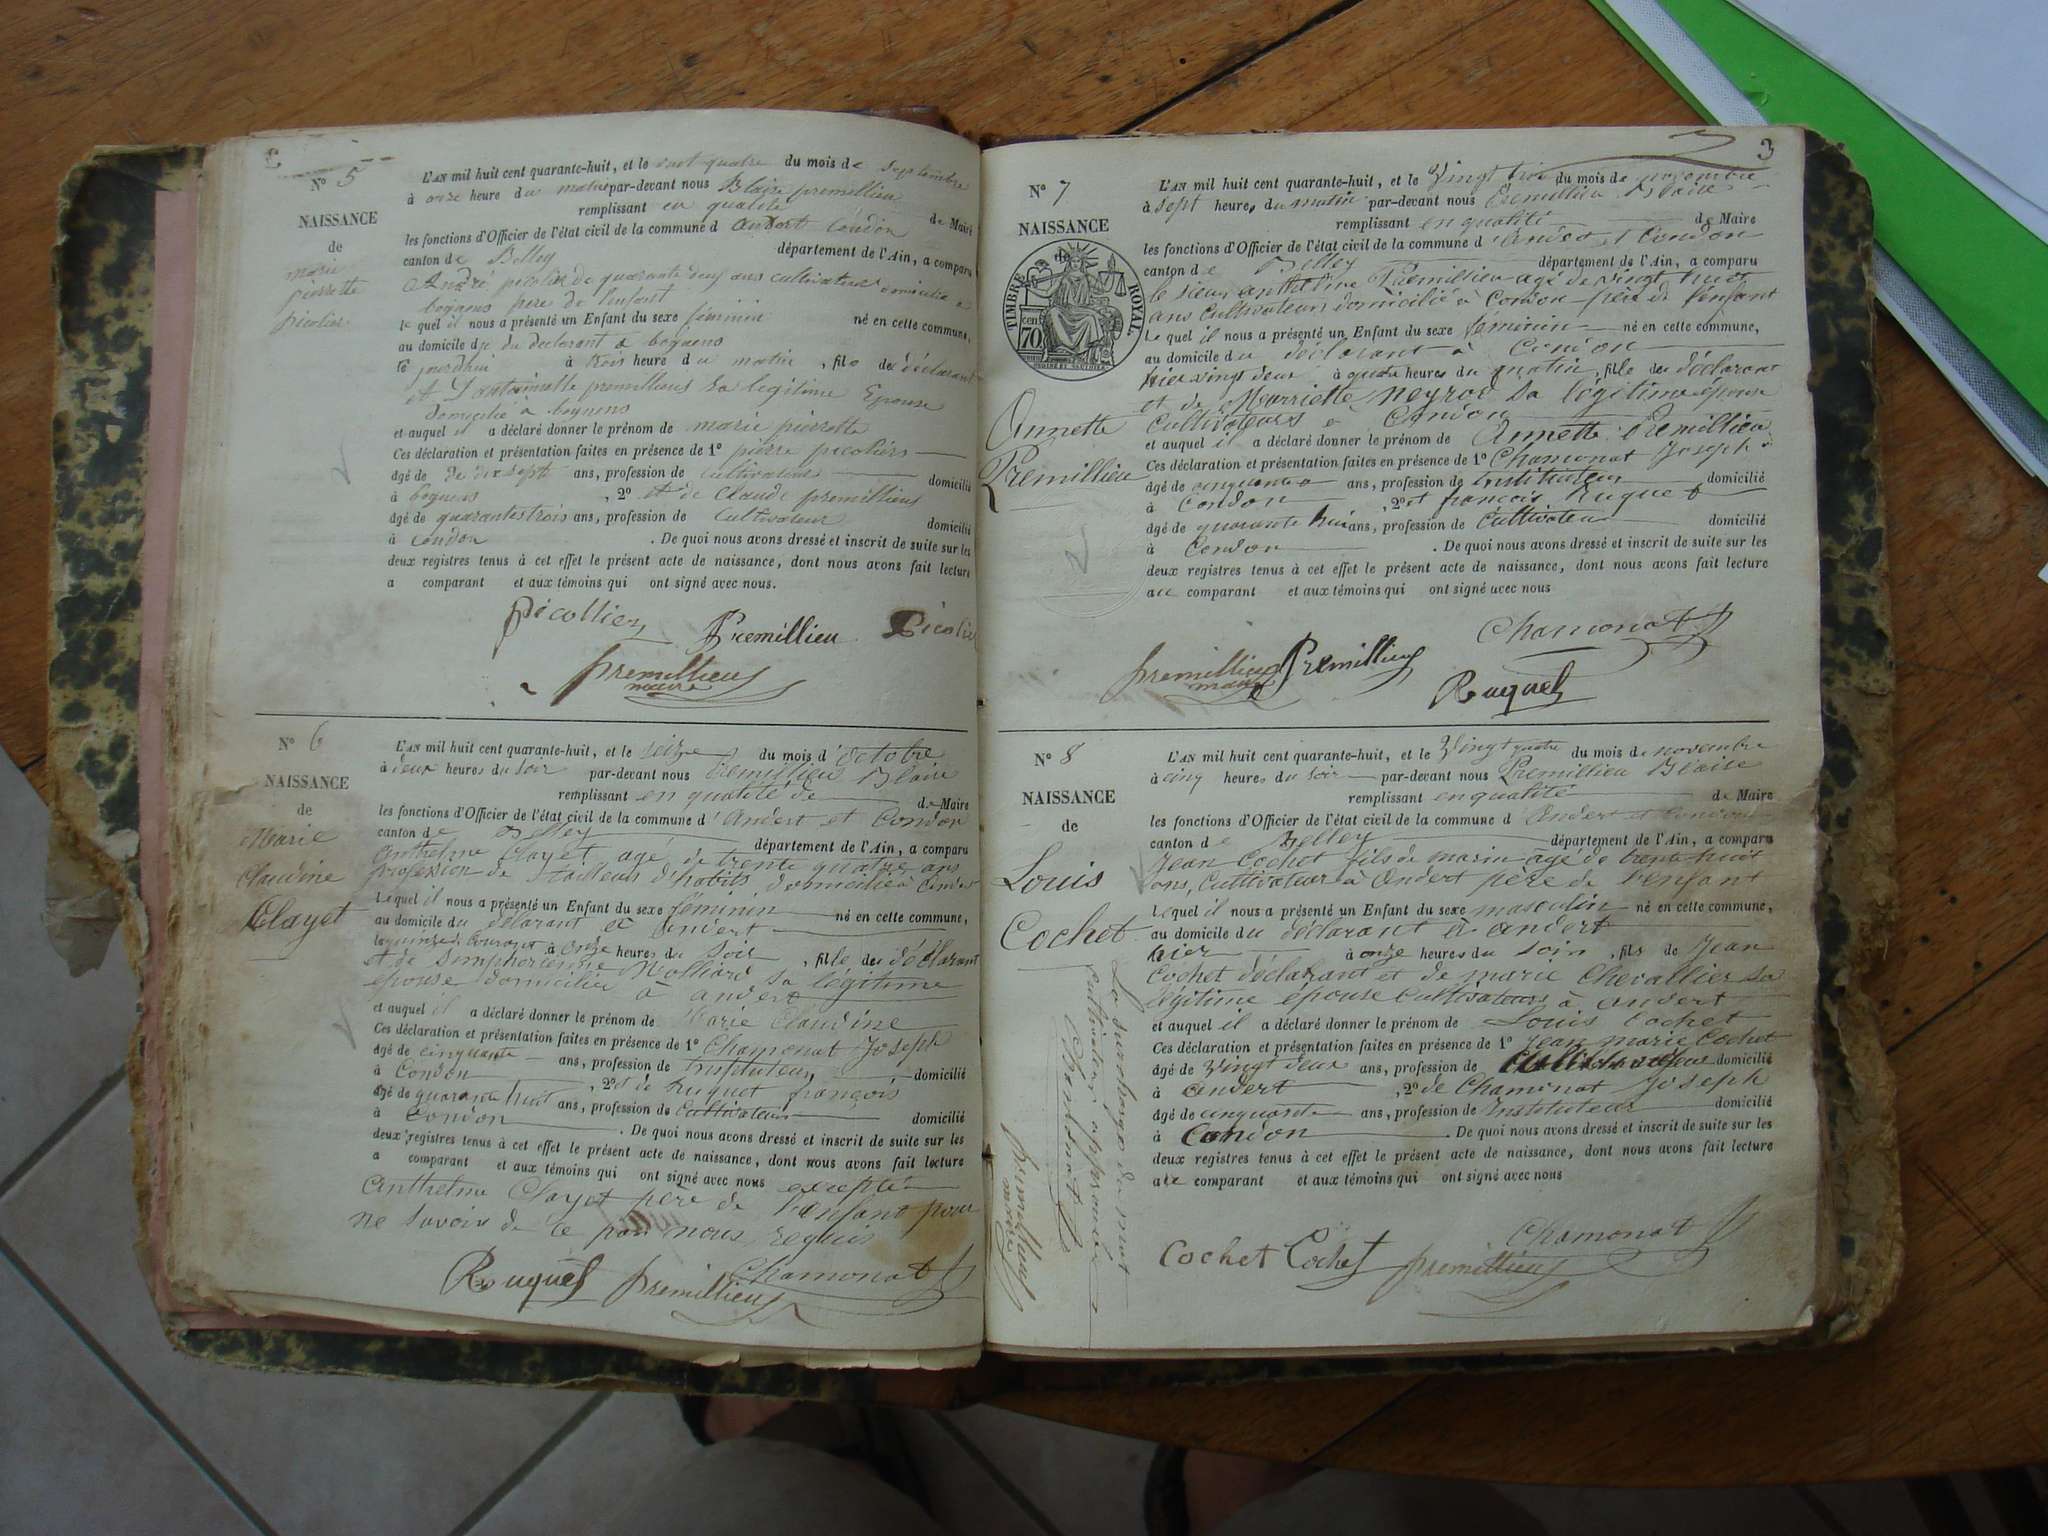 N° 5
NAISSANCE
de
marie
pierrette
picolier
L'AN mil huit cent quarante-huit, et le vint quatre du mois de septembre
à onze heure du matin par-devant nous Blaise premillieu
remplissant en qualité de Maire
les fonctions d'Officier de l'état civil de la commune d andert Condon
canton de Belley département de l'Ain, a comparu
André picolier de quarante deux ans cultivateur domicilié a
bognens pere de l'enfant
le quel il nous a présenté un Enfant du sexe féminin né en cette commune,
au domicile du declarant a bognens
jourdhui à trois heure du matin, fils de déclarant
et premillieu sa legitime Epouse
domicilié a bognens
et auquel il a déclaré donner le prénom de marie pierrette
Ces déclaration et présentation faites en présence de 1° pierre picoliers
âgé de dix sept ans, profession de cultivateur domicilié
à bognens , 2° et de Claude premillieu
âgé de quarantestrois ans, profession de Cultivateur domicilié
à Condon . De quoi nous avons dressé et inscrit de suite sur les
deux registres tenus à cet effet le présent acte de naissance, dont nous avons fait lecture
a comparant et aux témoins qui ont signé avec nous.
Picollier Premillieu Picolie
premillieu
maire
N° 6
NAISSANCE
de
Marie
Claudine
Clayet
L'AN mil huit cent quarante-huit, et le seize du mois d'octobre
à deux heures du soir par-devant nous Premillieu Blaise
remplissant en qualité de de Maire
les fonctions d'Officier de l'état civil de la commune d'andert et Condon
canton de Belley département de l'Ain, a comparu
Anthelme Clayet agé de trente quatre ans
profession de tailleur d'habits domicilié à andert
Lequel il nous a présenté un Enfant du sexe féminin né en cette commune,
au domicile du déclarant à andert
le quinze du courant à onze heures du soir, fille du déclarant
et de Simphorienne Molliard sa légitime
épouse domiciliés à andert
et auquel il a déclaré donner le prénom de Marie Claudine
Ces déclaration et présentation faites en présence de 1° Chamonat Joseph
âgé de cinquante ans, profession de Instituteur, domicilié
à Condon , 2° et de Ruquet françois
âgé de quarante huit ans, profession de Cultivateur domicilié
à Condon . De quoi nous avons dressé et inscrit de suite sur les
deux registres tenus à cet effet le présent acte de naissance, dont nous avons fait lecture
a comparant et aux témoins qui ont signé avec nous excepté
Anthelme Clayet père de l'enfant pour
ne savoir de ce par nous requis
Ruquet premillieu Chamonat
3
N° 7
NAISSANCE
de
TIMBRE ROYAL
70 cen
Annette
Premillieu
L'AN mil huit cent quarante-huit, et le Vingt trois du mois de novembre
à sept heures du matin par-devant nous Premillieu Blaise
remplissant en qualité de Maire
les fonctions d'Officier de l'état civil de la commune d'Andert et Condon
canton de Belley département de l'Ain, a comparu
le sieur anthelme Premillieu agé de vingt huit
ans Cultivateur domicilié à Condon père de l'enfant
Le quel il nous a présenté un Enfant du sexe féminin né en cette commune,
au domicile du déclarant à Condon
hier vingt deux à quatre heures du matin, fille du déclarant
et de Marriette neyrod sa légitime épouse
Cultivateurs à Condon
et auquel il a déclaré donner le prénom de Annette Premillieu
Ces déclaration et présentation faites en présence de 1° Chamonat Joseph
âgé de cinquante ans, profession de Instituteur domicilié
à Condon , 2° et françois Ruquet
âgé de quarante huit ans, profession de Cultivateur domicilié
à Condon . De quoi nous avons dressé et inscrit de suite sur les
deux registres tenus à cet effet le présent acte de naissance, dont nous avons fait lecture
au comparant et aux témoins qui ont signé avec nous
Chamonat
premillieu Premillieu
maire
Ruquet
N° 8
NAISSANCE
de
Louis
Cochet
La surcharge du mot
Cultivateur approuvée
Chamonat
premillieu
maire
L'AN mil huit cent quarante-huit, et le Vingt quatre du mois de novembre
à cinq heures du soir par-devant nous Premillieu Blaise
remplissant en qualité de Maire
les fonctions d'Officier de l'état civil de la commune d Andert et Condon
canton de Belley département de l'Ain, a comparu
Jean Cochet fils de marin agé de trente huit
ans, Cultivateur à Andert père de l'enfant
Lequel il nous a présenté un Enfant du sexe masculin né en cette commune,
au domicile du déclarant à andert
hier à onze heures du soir, fils de Jean
Cochet déclarant et de marie Chevallier sa
légitime épouse Cultivateurs à andert
et auquel il a déclaré donner le prénom de Louis Cochet
Ces déclaration et présentation faites en présence de 1° Jean marie Cochet
âgé de Vingt deux ans, profession de Cultivateur domicilié
à andert , 2° de Chamonat Joseph
âgé de cinquante ans, profession de Instituteur domicilié
à Condon . De quoi nous avons dressé et inscrit de suite sur les
deux registres tenus à cet effet le présent acte de naissance, dont nous avons fait lecture
au comparant et aux témoins qui ont signé avec nous
Chamonat
Cochet Cochet premillieu